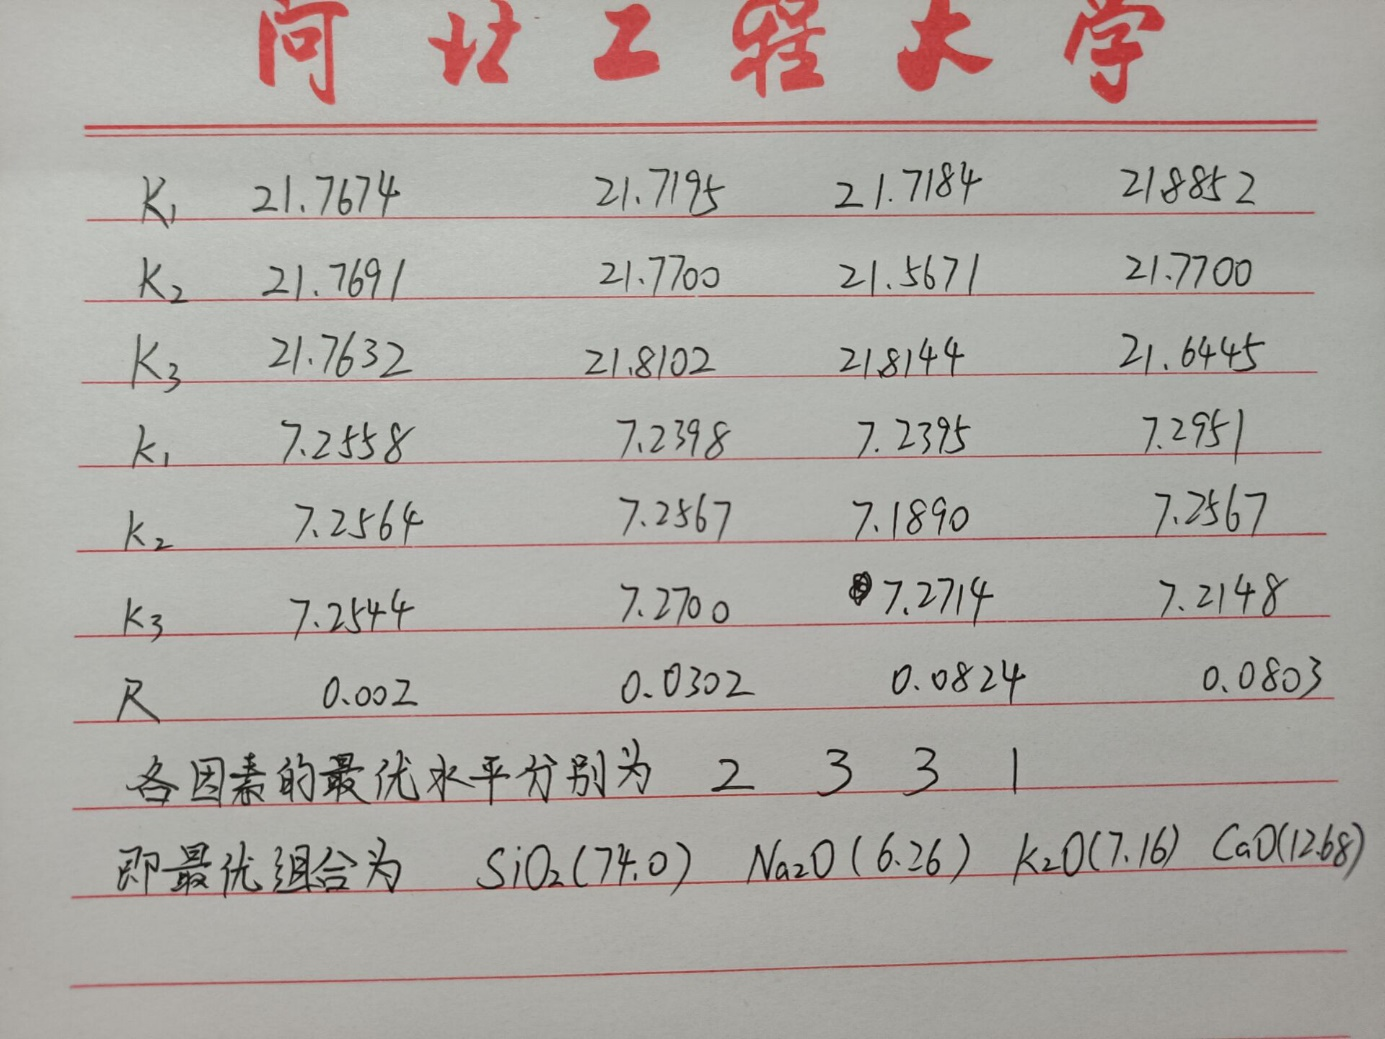 河北工程大学
K1 21.7674 21.7195 21.7184 21.8852
K2 21.7691 21.7700 21.5671 21.7700
K3 21.7632 21.8102 21.8144 21.6445
k1 7.2558 7.2398 7.2395 7.2951
k2 7.2564 7.2567 7.1890 7.2567
k3 7.2544 7.2700 7.2714 7.2148
R 0.002 0.0302 0.0824 0.0803
各因素的最优水平分别为 2 3 3 1
即最优组合为 SiO2(74.0) Na2O(6.26) K2O(7.16) CaO(12.68)